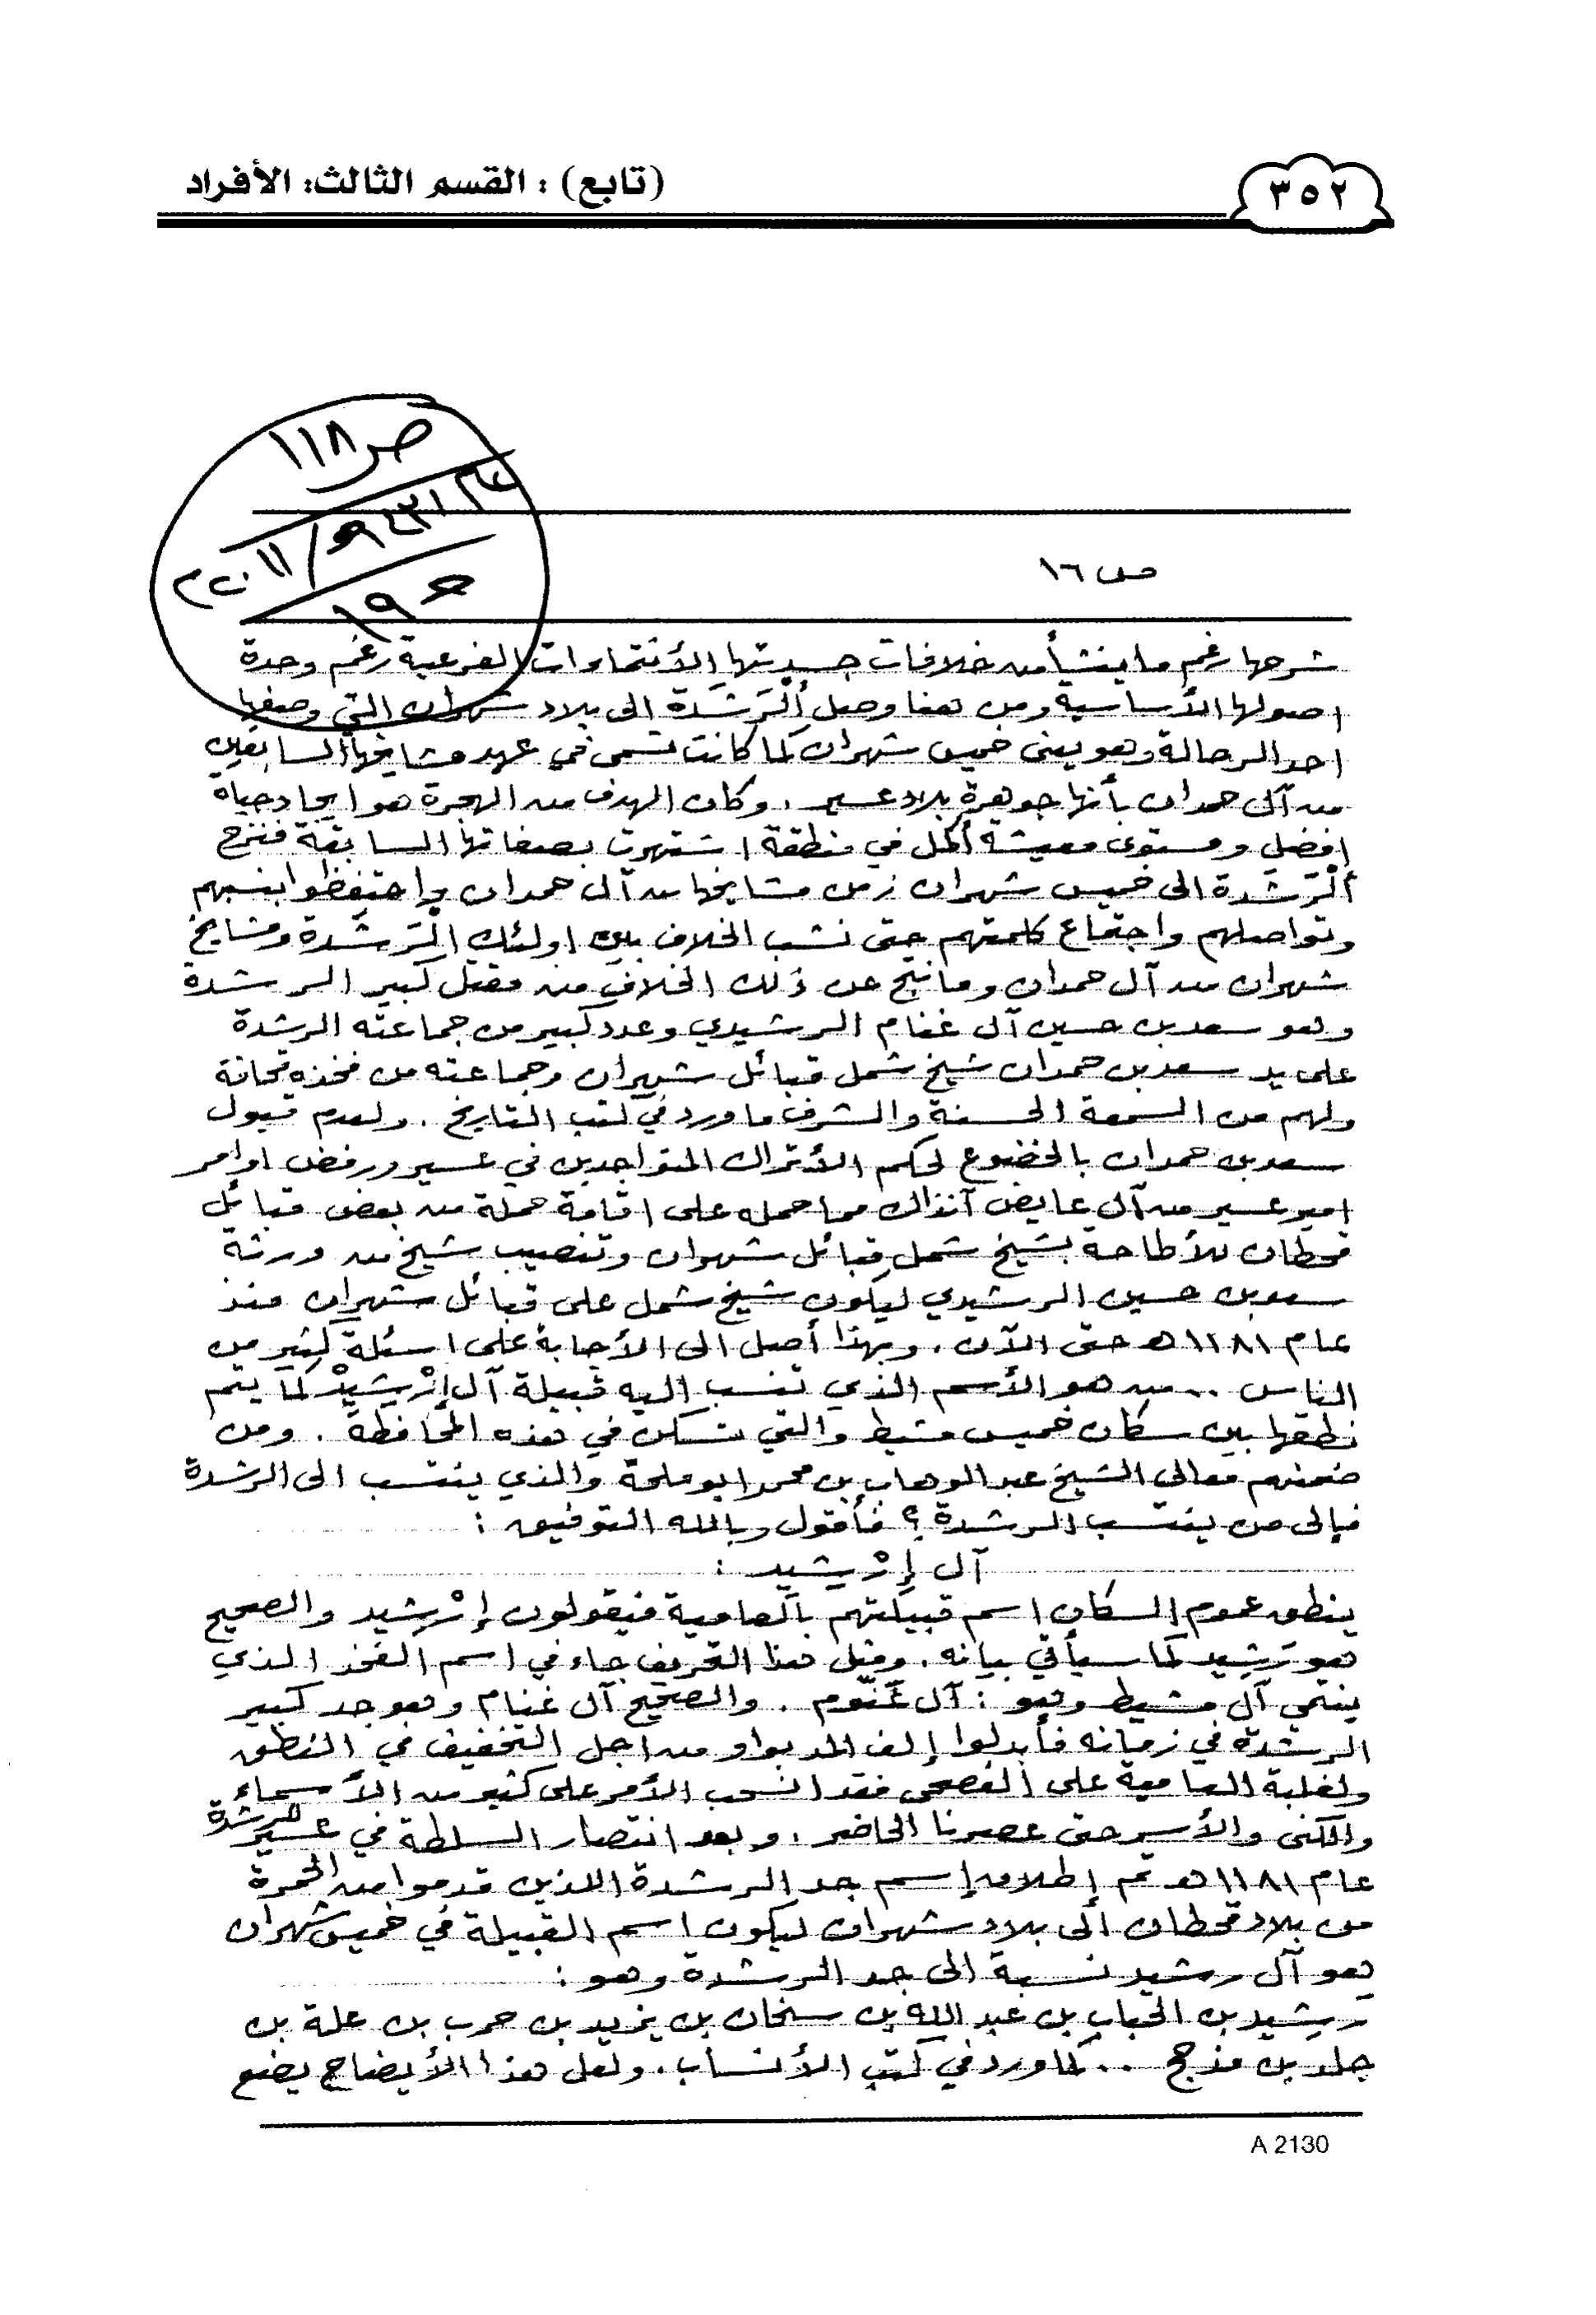 ٣٥٢
(تابع) : القسم الثالث: الأفراد
ص ١١٨
٢٠١١/
١٩
ص ١٦
شرحها رغم ما ينشأ من خلافات الأنتماءات الفرعية رغم وحدة
اصولها الأساسية ومن هنا وصل الرشدة الى بلاد شهران التي وصفها
احد الرحالة وهو يعني خميس شهران كما كانت تسمى في عهد مشايخها السابقين
من آل حمدان بأنها جوهرة بلاد عسير . وكان الهدف من الهجرة هو ايجاد حياة
افضل ومستوى معيشة أكمل في منطقة اشتهرت بصفاتها السابقة فنزح
الرشدة الى خميس شهران زمن مشايخها من آل حمدان واحتفظوا بنسبهم
وتواصلهم واجتماع كلمتهم حتى نشب الخلاف بين اولئك الرشدة ومشايخ
شهران من آل حمدان وما نتج عن ذلك الخلاف من مقتل كبير الرشدة
وهو سعد بن حسين آل غنام الرشيدي وعدد كبير من جماعته الرشدة
على يد سعد بن حمدان شيخ شمل قبائل شهران وجماعته من فخذه
ولهم من السمعة الحسنة والشرف ما ورد في كتب التاريخ . ولعدم قبول
سعد بن حمدان بالخضوع لحكم الأتراك المتواجدين في عسير ورفض اوامر
امير عسير من آل عايض آنذاك مما حمله على اقامة حملة من بعض قبائل
قحطان للأطاحة بشيخ شمل قبائل شهران وتنصيب شيخ من ورثة
سعد بن حسين الرشيدي ليكون شيخ شمل على قبائل شهران منذ
عام ١١٨١ هـ حتى الآن . وبهذا أصل الى الأجابة على اسئلة كثير من
الناس .. من هو الأسم الذي تنسب اليه قبيلة آل إرْشِيدْ كما يتم
نطقها بين سكان خميس مشيط والتي تسكن في هذه المحافظة . ومن
ضمنهم معالي الشيخ عبد الوهاب بن محمد ابو ملحة والذي ينتسب الى الرشدة
فإلى من ينتسب الرشدة ؟ فأقول وبالله التوفيق :
آل إرْشيد :
ينطق عموم السكان اسم قبيلتهم بالعامية فيقولون إرْشيد والصحيح
هو رَشِيد كما سيأتي بيانه . ومثل هذا التحريف جاء في اسم الفخذ الذي
ينتمي آل مشيط وهو : آل غنّوم . والصحيح آل غنام وهو جد كبير
الرشدة في زمانه فأبدلوا إلف المد بواو من اجل التخفيف في النطق
ولغلبة العامية على الفصحى فقد انسحب الأمر على كثير من الأسماء
والكنى والأسر حتى عصرنا الحاضر . وبعد انتصار السلطة في عسير للرشدة
عام ١١٨١ هـ تم إطلاق إسم جد الرشدة اللذين قدموا من الحمرة
من بلاد قحطان الى بلاد شهران ليكون اسم القبيلة في خميس شهران
هو آل رشيد نسبة الى جد الرشدة وهو :
رشيد بن الحباب بن عبد الله بن سنحان بن يزيد بن حرب بن علة بن
جلد بن مذحج .. كما ورد في كتب الأنساب . ولعل هذا الأيضاح يضع
A 2130